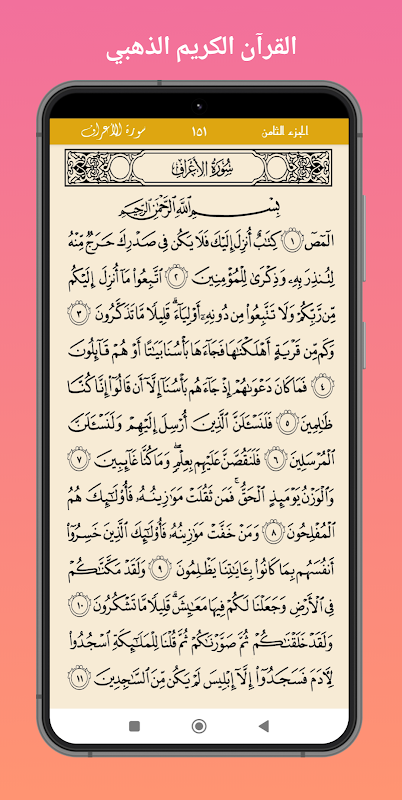 القرآن الكريم الذهبي
الجزء الثامن ١٥١ سورة الأعراف
سُورَةُ الأَعْرَافِ
بِسْمِ ٱللَّهِ ٱلرَّحْمَٰنِ ٱلرَّحِيمِ
الٓمٓصٓ ١ كِتَٰبٌ أُنزِلَ إِلَيْكَ فَلَا يَكُن فِى صَدْرِكَ حَرَجٌ مِّنْهُ
لِتُنذِرَ بِهِۦ وَذِكْرَىٰ لِلْمُؤْمِنِينَ ٢ ٱتَّبِعُوا۟ مَآ أُنزِلَ إِلَيْكُم
مِّن رَّبِّكُمْ وَلَا تَتَّبِعُوا۟ مِن دُونِهِۦٓ أَوْلِيَآءَ ۗ قَلِيلًا مَّا تَذَكَّرُونَ ٣
وَكَم مِّن قَرْيَةٍ أَهْلَكْنَٰهَا فَجَآءَهَا بَأْسُنَا بَيَٰتًا أَوْ هُمْ قَآئِلُونَ
٤ فَمَا كَانَ دَعْوَىٰهُمْ إِذْ جَآءَهُم بَأْسُنَآ إِلَّآ أَن قَالُوٓا۟ إِنَّا كُنَّا
ظَٰلِمِينَ ٥ فَلَنَسْـَٔلَنَّ ٱلَّذِينَ أُرْسِلَ إِلَيْهِمْ وَلَنَسْـَٔلَنَّ
ٱلْمُرْسَلِينَ ٦ فَلَنَقُصَّنَّ عَلَيْهِم بِعِلْمٍ ۖ وَمَا كُنَّا غَآئِبِينَ ٧
وَٱلْوَزْنُ يَوْمَئِذٍ ٱلْحَقُّ ۚ فَمَن ثَقُلَتْ مَوَٰزِينُهُۥ فَأُو۟لَٰٓئِكَ هُمُ
ٱلْمُفْلِحُونَ ٨ وَمَنْ خَفَّتْ مَوَٰزِينُهُۥ فَأُو۟لَٰٓئِكَ ٱلَّذِينَ خَسِرُوٓا۟
أَنفُسَهُم بِمَا كَانُوا۟ بِـَٔايَٰتِنَا يَظْلِمُونَ ٩ وَلَقَدْ مَكَّنَّٰكُمْ
فِى ٱلْأَرْضِ وَجَعَلْنَا لَكُمْ فِيهَا مَعَٰيِشَ ۗ قَلِيلًا مَّا تَشْكُرُونَ ١٠
وَلَقَدْ خَلَقْنَٰكُمْ ثُمَّ صَوَّرْنَٰكُمْ ثُمَّ قُلْنَا لِلْمَلَٰٓئِكَةِ ٱسْجُدُوا۟
لِـَٔادَمَ فَسَجَدُوٓا۟ إِلَّآ إِبْلِيسَ لَمْ يَكُن مِّنَ ٱلسَّٰجِدِينَ ١١